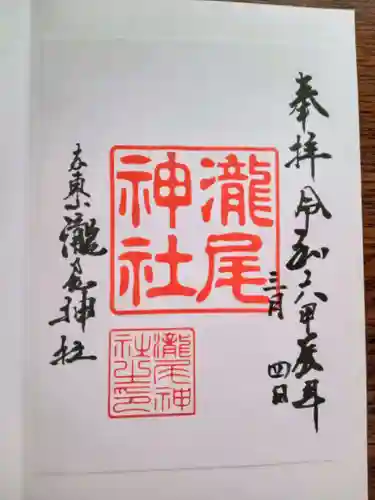 奉拝 令和六甲辰年
三月
四日
瀧尾
神社
瀧尾神
社之印
京東山瀧尾神社